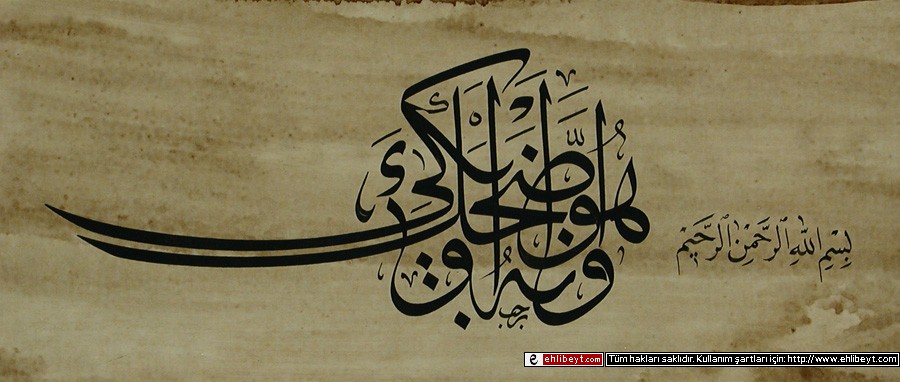 بِسْمِ اللهِ الرَّحْمنِ الرَّحِيمِ
وَأَنَّهُ هُوَ أَضْحَكَ وَأَبْكَى
ehlibeyt.com Tüm hakları saklıdır. Kullanım şartları için: http://www.ehlibeyt.com